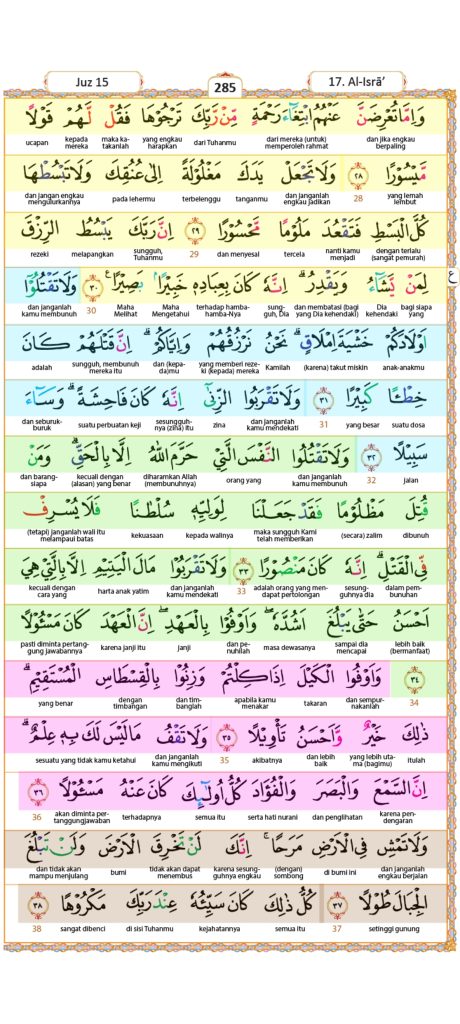 Juz 15
285
17. Al-Isrā’
وَاِمَّا تُعْرِضَنَّ عَنْهُمُ ابْتِغَاۤءَ رَحْمَةٍ مِّنْ رَّبِّكَ تَرْجُوْهَا فَقُلْ لَّهُمْ قَوْلًا
dan jika engkau berpaling dari mereka (untuk) memperoleh rahmat dari Tuhanmu yang engkau harapkan maka katakanlah kepada mereka ucapan
مَّيْسُوْرًا ۝٢٨ وَلَا تَجْعَلْ يَدَكَ مَغْلُوْلَةً اِلٰى عُنُقِكَ وَلَا تَبْسُطْهَا
yang lemah lembut 28 dan janganlah engkau jadikan tanganmu terbelenggu pada lehermu dan jangan engkau mengulurkannya
كُلَّ الْبَسْطِ فَتَقْعُدَ مَلُوْمًا مَّحْسُوْرًا ۝٢٩ اِنَّ رَبَّكَ يَبْسُطُ الرِّزْقَ
dengan terlalu (sangat pemurah) nanti kamu menjadi tercela dan menyesal 29 sungguh, Tuhanmu melapangkan rezeki
لِمَنْ يَّشَاۤءُ وَيَقْدِرُ ۗ اِنَّهٗ كَانَ بِعِبَادِهٖ خَبِيْرًا ۢ بَصِيْرًا ۝٣٠ ࣖ وَلَا تَقْتُلُوْٓا
ع
bagi siapa yang Dia kehendaki dan membatasi (bagi yang Dia kehendaki) sungguh, Dia terhadap hamba-hamba-Nya Maha Mengetahui Maha Melihat 30 dan janganlah kamu membunuh
اَوْلَادَكُمْ خَشْيَةَ اِمْلَاقٍ ۗ نَحْنُ نَرْزُقُهُمْ وَاِيَّاكُمْ ۗ اِنَّ قَتْلَهُمْ كَانَ
anak-anakmu (karena) takut miskin Kamilah yang memberi rezeki (kepada) mereka dan (kepada)mu sungguh, membunuh mereka itu adalah
خِطْـًٔا كَبِيْرًا ۝٣١ وَلَا تَقْرَبُوا الزِّنٰىٓ اِنَّهٗ كَانَ فَاحِشَةً ۗ وَسَاۤءَ
suatu dosa yang besar 31 dan janganlah kamu mendekati zina sesungguhnya (zina) itu suatu perbuatan keji dan seburuk-buruk
سَبِيْلًا ۝٣٢ وَلَا تَقْتُلُوا النَّفْسَ الَّتِيْ حَرَّمَ اللّٰهُ اِلَّا بِالْحَقِّ ۗ وَمَنْ
jalan 32 dan janganlah kamu membunuh orang yang diharamkan Allah (membunuhnya) kecuali dengan (alasan) yang benar dan barangsiapa
قُتِلَ مَظْلُوْمًا فَقَدْ جَعَلْنَا لِوَلِيِّهٖ سُلْطٰنًا فَلَا يُسْرِفْ
dibunuh (secara) zalim maka sungguh Kami telah memberikan kepada walinya kekuasaan (tetapi) janganlah wali itu melampaui batas
فِّى الْقَتْلِ ۗ اِنَّهٗ كَانَ مَنْصُوْرًا ۝٣٣ وَلَا تَقْرَبُوْا مَالَ الْيَتِيْمِ اِلَّا بِالَّتِيْ هِيَ
dalam pembunuhan sesungguhnya dia adalah orang yang mendapat pertolongan 33 dan janganlah kamu mendekati harta anak yatim kecuali dengan cara yang
اَحْسَنُ حَتّٰى يَبْلُغَ اَشُدَّهٗ ۖ وَاَوْفُوْا بِالْعَهْدِ ۖ اِنَّ الْعَهْدَ كَانَ مَسْـُٔوْلًا
lebih baik (bermanfaat) sampai dia mencapai masa dewasanya dan penuhilah janji karena janji itu pasti diminta pertanggungjawabannya
۝٣٤ وَاَوْفُوا الْكَيْلَ اِذَا كِلْتُمْ وَزِنُوْا بِالْقِسْطَاسِ الْمُسْتَقِيْمِ ۗ
34 dan sempurnakanlah takaran apabila kamu menakar dan timbanglah dengan timbangan yang benar
ذٰلِكَ خَيْرٌ وَّاَحْسَنُ تَأْوِيْلًا ۝٣٥ وَلَا تَقْفُ مَا لَيْسَ لَكَ بِهٖ عِلْمٌ ۗ
itulah yang lebih utama (bagimu) dan lebih baik akibatnya 35 dan janganlah kamu mengikuti sesuatu yang tidak kamu ketahui
اِنَّ السَّمْعَ وَالْبَصَرَ وَالْفُؤَادَ كُلُّ اُولٰۤىِٕكَ كَانَ عَنْهُ مَسْـُٔوْلًا ۝٣٦
karena pendengaran dan penglihatan serta hati nurani semua itu terhadapnya akan diminta pertanggungjawaban 36
وَلَا تَمْشِ فِى الْاَرْضِ مَرَحًا ۚ اِنَّكَ لَنْ تَخْرِقَ الْاَرْضَ وَلَنْ تَبْلُغَ
dan janganlah engkau berjalan di bumi ini (dengan) sombong karena sesungguhnya engkau tidak akan dapat menembus bumi dan tidak akan mampu menjulang
الْجِبَالَ طُوْلًا ۝٣٧ كُلُّ ذٰلِكَ كَانَ سَيِّئُهٗ عِنْدَ رَبِّكَ مَكْرُوْهًا ۝٣٨
setinggi gunung 37 semua itu kejahatannya di sisi Tuhanmu sangat dibenci 38